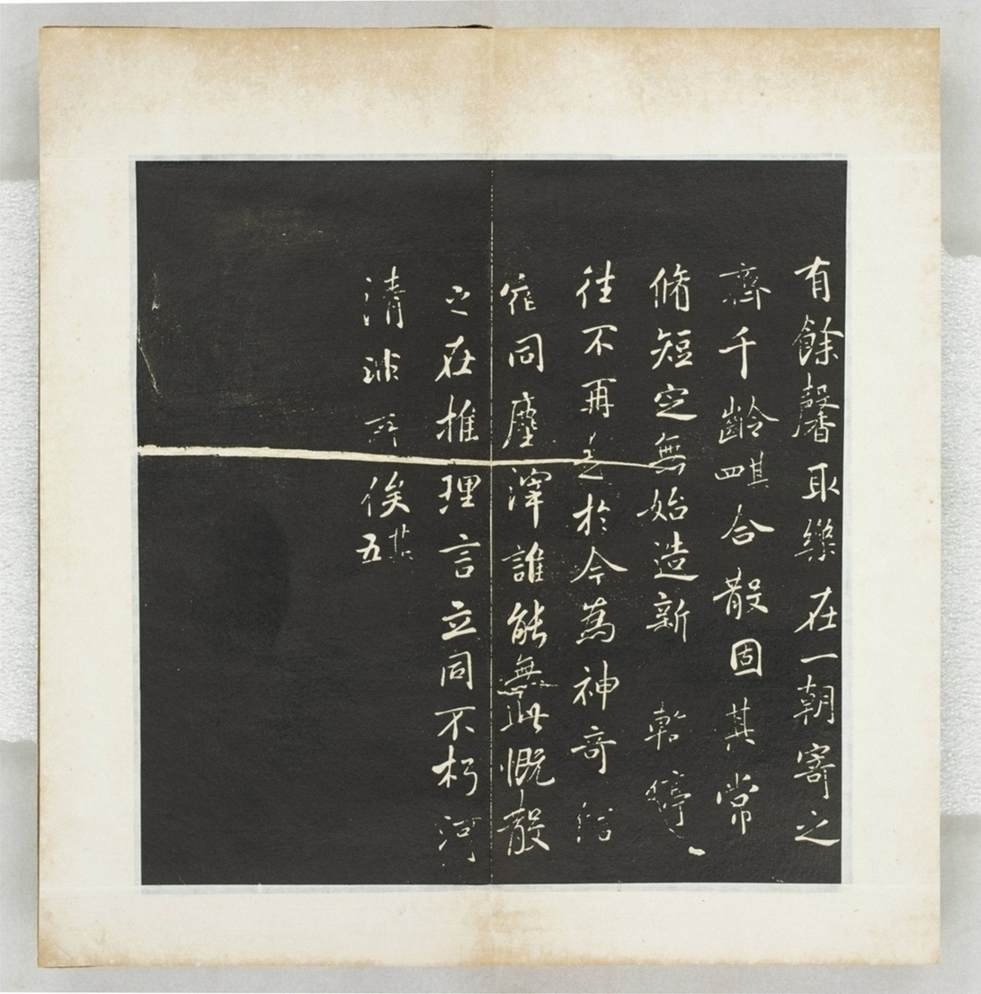 有餘馨取樂在一朝寄之
齊千齡其四合散固其常
脩短定無始造新暫停一
往不再起於今為神奇信
宿同塵滓誰能無此慨散
之在推理言立同不朽河
清非所俟其五